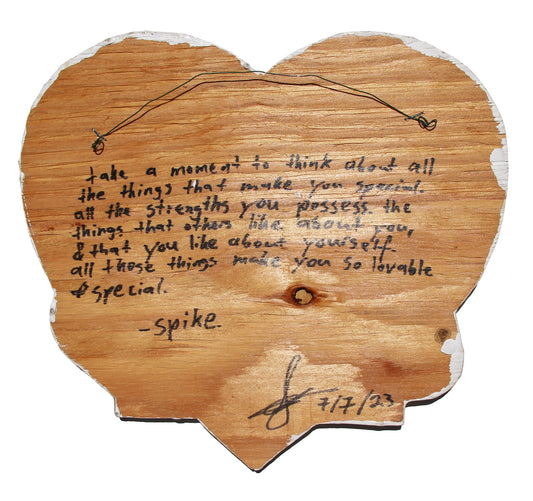 take a moment to think about all
the things that make you special.
all the strengths you possess. the
things that others like about you,
& that you like about yourself.
all those things make you so lovable
& special.
-spike.
7/7/23